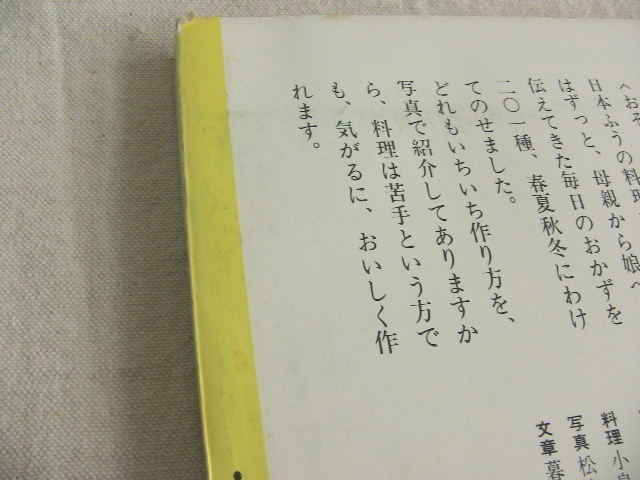 へおそ
日本ふうの料理
はずっと、母親から娘へ
伝えてきた毎日のおかずを
二〇一種、春夏秋冬にわけ
てのせました。
どれもいちいち作り方を、
写真で紹介してありますか
ら、料理は苦手という方で
も、気がるに、おいしく作
れます。
料理 小
写真 松
文章 暮